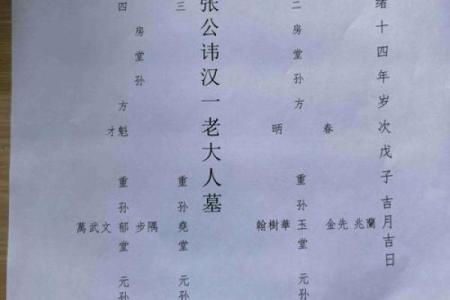 绪十四年岁次戊子吉月吉日
兆蘭
春 金先
二房堂孙方 重孙玉堂 元孙
昞 翰樹華
张公讳汉一老大人墓
三 重孙尧堂 元孙
步隅
四房堂孙方魁 重孙郁堂 元孙
才 萬武文